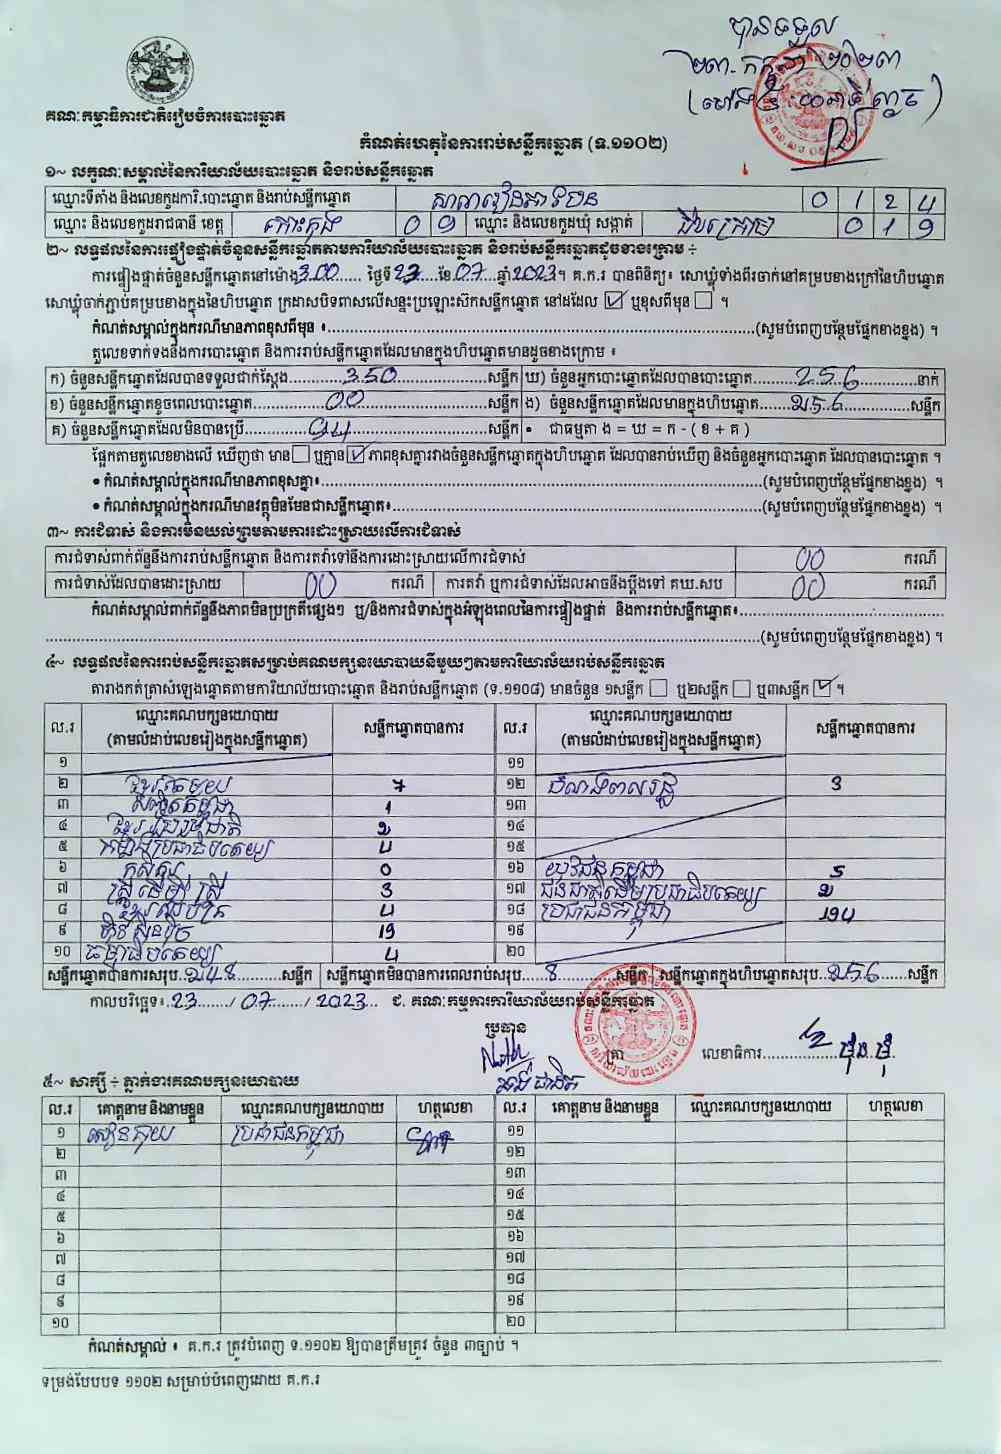 បានទទួល
២៣-កក្កដា ២០២៣
គណៈកម្មាធិការជាតិរៀបចំការបោះឆ្នោត
កំណត់ហេតុនៃការរាប់សន្លឹកឆ្នោត (ទ.១១០២)
១~ លក្ខណៈសម្គាល់នៃការិយាល័យបោះឆ្នោត និងរាប់សន្លឹកឆ្នោត
ឈ្មោះទីតាំង និងលេខកូដការិ.បោះឆ្នោត និងរាប់សន្លឹកឆ្នោត សាលារៀនតាទៃបន 0 1 2 4
ឈ្មោះ និងលេខកូដរាជធានី ខេត្ត កោះកុង 0 9 ឈ្មោះ និងលេខកូដឃុំ សង្កាត់ ជីបក្រោម 0 1 9
២~ លទ្ធផលនៃការផ្ទៀងផ្ទាត់ចំនួនសន្លឹកឆ្នោតតាមការិយាល័យបោះឆ្នោត និងរាប់សន្លឹកឆ្នោតដូចខាងក្រោម ÷
ការផ្ទៀងផ្ទាត់ចំនួនសន្លឹកឆ្នោតនៅម៉ោង 3.00 ថ្ងៃទី 23 ខែ 07 ឆ្នាំ 2023។ គ.ក.រ បានពិនិត្យ៖ សោឃ្លុំទាំងពីរចាក់នៅគម្របខាងក្រៅនៃហិបឆ្នោត
សោឃ្លុំចាក់ភ្ជាប់គម្របខាងក្នុងនៃហិបឆ្នោត ក្រដាសបិទពាសលើសន្ទះប្រឡោះស៊កសន្លឹកឆ្នោត នៅដដែល ☑ ឬខុសពីមុន ☐ ។
កំណត់សម្គាល់ក្នុងករណីមានភាពខុសពីមុន ៖ (សូមបំពេញបន្ថែមផ្នែកខាងខ្នង) ។
តួលេខទាក់ទងនឹងការបោះឆ្នោត និងការរាប់សន្លឹកឆ្នោតដែលមានក្នុងហិបឆ្នោតមានដូចខាងក្រោម ៖
ក) ចំនួនសន្លឹកឆ្នោតដែលបានទទួលជាក់ស្តែង 350 សន្លឹក ឃ) ចំនួនអ្នកបោះឆ្នោតដែលបានបោះឆ្នោត 256 នាក់
ខ) ចំនួនសន្លឹកឆ្នោតខូចពេលបោះឆ្នោត 00 សន្លឹក ង) ចំនួនសន្លឹកឆ្នោតដែលមានក្នុងហិបឆ្នោត 256 សន្លឹក
គ) ចំនួនសន្លឹកឆ្នោតដែលមិនបានប្រើ 94 សន្លឹក • ជាធម្មតា ង = ឃ = ក - ( ខ + គ )
ផ្អែកតាមតួលេខខាងលើ ឃើញថា មាន ☐ ឬគ្មាន ☑ ភាពខុសគ្នារវាងចំនួនសន្លឹកឆ្នោតក្នុងហិបឆ្នោត ដែលបានរាប់ឃើញ និងចំនួនអ្នកបោះឆ្នោត ដែលបានបោះឆ្នោត ។
• កំណត់សម្គាល់ក្នុងករណីមានភាពខុសគ្នា៖ (សូមបំពេញបន្ថែមផ្នែកខាងខ្នង) ។
• កំណត់សម្គាល់ក្នុងករណីមានវត្ថុមិនមែនជាសន្លឹកឆ្នោត៖ (សូមបំពេញបន្ថែមផ្នែកខាងខ្នង) ។
៣~ ការជំទាស់ និងការមិនយល់ព្រមតាមការដោះស្រាយលើការជំទាស់
ការជំទាស់ពាក់ព័ន្ធនឹងការរាប់សន្លឹកឆ្នោត និងការតវ៉ាទៅនឹងការដោះស្រាយលើការជំទាស់ 00 ករណី
ការជំទាស់ដែលបានដោះស្រាយ 00 ករណី ការតវ៉ា ឬការជំទាស់ដែលអាចនឹងប្តឹងទៅ គឃ.សប 00 ករណី
កំណត់សម្គាល់ពាក់ព័ន្ធនឹងភាពមិនប្រក្រតីផ្សេងៗ ឬ/និងការជំទាស់ក្នុងអំឡុងពេលនៃការផ្ទៀងផ្ទាត់ និងការរាប់សន្លឹកឆ្នោត៖
(សូមបំពេញបន្ថែមផ្នែកខាងខ្នង) ។
៤~ លទ្ធផលនៃការរាប់សន្លឹកឆ្នោតសម្រាប់គណបក្សនយោបាយនីមួយៗតាមការិយាល័យរាប់សន្លឹកឆ្នោត
តារាងកត់ត្រាសំឡេងឆ្នោតតាមការិយាល័យបោះឆ្នោត និងរាប់សន្លឹកឆ្នោត (ទ.១១០៨) មានចំនួន ១សន្លឹក ☐ ឬ២សន្លឹក ☐ ឬ៣សន្លឹក ☑ ។
ល.រ ឈ្មោះគណបក្សនយោបាយ (តាមលំដាប់លេខរៀងក្នុងសន្លឹកឆ្នោត) សន្លឹកឆ្នោតបានការ ល.រ ឈ្មោះគណបក្សនយោបាយ (តាមលំដាប់លេខរៀងក្នុងសន្លឹកឆ្នោត) សន្លឹកឆ្នោតបានការ
១ ១១
២ ខ្មែរតែមួយ 7 ១២ ដំណងពលរដ្ឋ 3
៣ សញ្ជាតិកម្ពុជា 1 ១៣
៤ ខ្មែររួបរួមជាតិ 2 ១៤
៥ កម្លាំងប្រជាធិបតេយ្យ 4 ១៥
៦ កសិករ 0 ១៦ យុវជនកម្ពុជា 5
៧ ស្ត្រីដើម្បីស្ត្រី 3 ១៧ ជនជាតិដើមប្រជាធិបតេយ្យ 2
៨ 4 ១៨ ប្រជាជនកម្ពុជា 194
៩ ហ្វ៊ុនស៊ិនប៉ិច 19 ១៩
១០ ធម្មាធិបតេយ្យ 4 ២០
សន្លឹកឆ្នោតបានការសរុប 248 សន្លឹក សន្លឹកឆ្នោតមិនបានការពេលរាប់សរុប 8 សន្លឹក សន្លឹកឆ្នោតក្នុងហិបឆ្នោតសរុប 256 សន្លឹក
កាលបរិច្ឆេទ៖ 23 / 07 / 2023 ជ. គណៈកម្មការការិយាល័យរាប់សន្លឹកឆ្នោត
ប្រធាន
ត្រា លេខាធិការ
៥~ សាក្សី ÷ ភ្នាក់ងារគណបក្សនយោបាយ
ល.រ គោត្តនាម និងនាមខ្លួន ឈ្មោះគណបក្សនយោបាយ ហត្ថលេខា ល.រ គោត្តនាម និងនាមខ្លួន ឈ្មោះគណបក្សនយោបាយ ហត្ថលេខា
១ ប្រជាជនកម្ពុជា ១១
២ ១២
៣ ១៣
៤ ១៤
៥ ១៥
៦ ១៦
៧ ១៧
៨ ១៨
៩ ១៩
១០ ២០
កំណត់សម្គាល់ ៖ គ.ក.រ ត្រូវបំពេញ ទ.១១០២ ឱ្យបានត្រឹមត្រូវ ចំនួន ៣ច្បាប់ ។
ទម្រង់បែបបទ ១១០២ សម្រាប់បំពេញដោយ គ.ក.រ